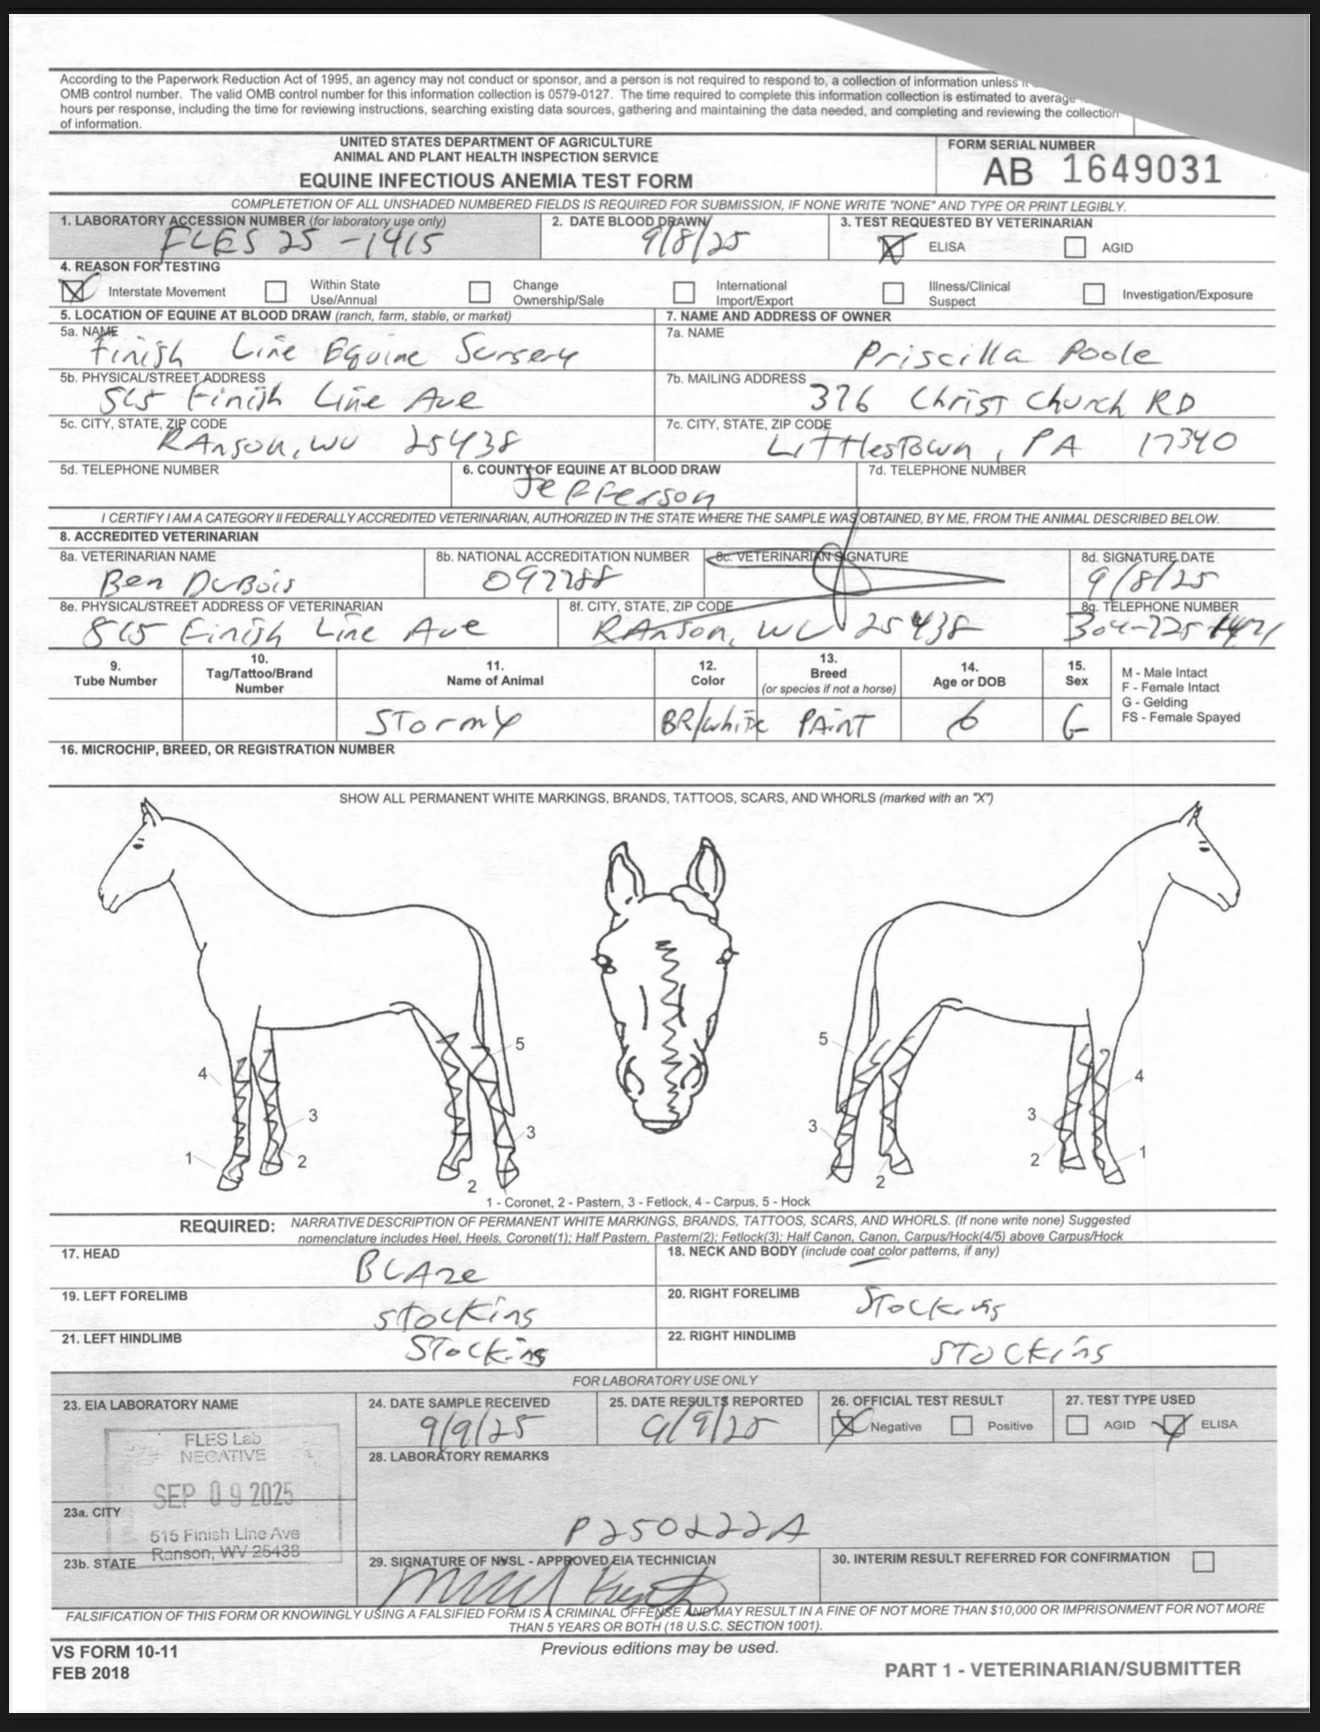 According to the Paperwork Reduction Act of 1995, an agency may not conduct or sponsor, and a person is not required to respond to, a collection of information unless
OMB control number. The valid OMB control number for this information collection is 0579-0127. The time required to complete this information collection is estimated to average
hours per response, including the time for reviewing instructions, searching existing data sources, gathering and maintaining the data needed, and completing and reviewing the collection
of information.
UNITED STATES DEPARTMENT OF AGRICULTURE
ANIMAL AND PLANT HEALTH INSPECTION SERVICE
EQUINE INFECTIOUS ANEMIA TEST FORM
FORM SERIAL NUMBER
AB 1649031
COMPLETETION OF ALL UNSHADED NUMBERED FIELDS IS REQUIRED FOR SUBMISSION, IF NONE WRITE "NONE" AND TYPE OR PRINT LEGIBLY.
1. LABORATORY ACCESSION NUMBER (for laboratory use only)
FLES 25-1415
2. DATE BLOOD DRAWN
9/8/25
3. TEST REQUESTED BY VETERINARIAN
ELISA AGID
4. REASON FOR TESTING
Interstate Movement
Within State Use/Annual
Change Ownership/Sale
International Import/Export
Illness/Clinical Suspect
Investigation/Exposure
5. LOCATION OF EQUINE AT BLOOD DRAW (ranch, farm, stable, or market)
5a. NAME
Finish Line Equine Surgery
5b. PHYSICAL/STREET ADDRESS
515 Finish Line Ave
5c. CITY, STATE, ZIP CODE
RAnson, WV 25438
5d. TELEPHONE NUMBER
6. COUNTY OF EQUINE AT BLOOD DRAW
Jefferson
7. NAME AND ADDRESS OF OWNER
7a. NAME
Priscilla Poole
7b. MAILING ADDRESS
376 Christ Church RD
7c. CITY, STATE, ZIP CODE
LittlesTown, PA 17340
7d. TELEPHONE NUMBER
I CERTIFY I AM A CATEGORY II FEDERALLY ACCREDITED VETERINARIAN, AUTHORIZED IN THE STATE WHERE THE SAMPLE WAS OBTAINED, BY ME, FROM THE ANIMAL DESCRIBED BELOW.
8. ACCREDITED VETERINARIAN
8a. VETERINARIAN NAME
Ben DuBois
8b. NATIONAL ACCREDITATION NUMBER
097288
8c. VETERINARIAN SIGNATURE
8d. SIGNATURE DATE
9/8/25
8e. PHYSICAL/STREET ADDRESS OF VETERINARIAN
515 Finish Line Ave
8f. CITY, STATE, ZIP CODE
RAnson, WV 25438
8g. TELEPHONE NUMBER
304-725-1471
9. Tube Number
10. Tag/Tattoo/Brand Number
11. Name of Animal
12. Color
13. Breed (or species if not a horse)
14. Age or DOB
15. Sex
M - Male Intact
F - Female Intact
G - Gelding
FS - Female Spayed
STormy BR/white PAinT 6 G
16. MICROCHIP, BREED, OR REGISTRATION NUMBER
SHOW ALL PERMANENT WHITE MARKINGS, BRANDS, TATTOOS, SCARS, AND WHORLS (marked with an "X")
5 5
4 4
3 3
3 3
1 2 2 1
2 2
1 - Coronet, 2 - Pastern, 3 - Fetlock, 4 - Carpus, 5 - Hock
REQUIRED: NARRATIVE DESCRIPTION OF PERMANENT WHITE MARKINGS, BRANDS, TATTOOS, SCARS, AND WHORLS. (If none write none) Suggested
nomenclature includes Heel, Heels, Coronet(1); Half Pastern, Pastern(2); Fetlock(3); Half Canon, Canon, Carpus/Hock(4/5) above Carpus/Hock
17. HEAD
BLAze
18. NECK AND BODY (include coat color patterns, if any)
19. LEFT FORELIMB
stocking
20. RIGHT FORELIMB
Stocking
21. LEFT HINDLIMB
Stocking
22. RIGHT HINDLIMB
STOCKing
FOR LABORATORY USE ONLY
23. EIA LABORATORY NAME
FLES Lab
NEGATIVE
SEP 09 2025
23a. CITY
515 Finish Line Ave
Ranson, WV 25438
23b. STATE
24. DATE SAMPLE RECEIVED
9/9/25
25. DATE RESULTS REPORTED
9/9/25
26. OFFICIAL TEST RESULT
Negative Positive
27. TEST TYPE USED
AGID ELISA
28. LABORATORY REMARKS
P250222A
29. SIGNATURE OF NVSL - APPROVED EIA TECHNICIAN
30. INTERIM RESULT REFERRED FOR CONFIRMATION
FALSIFICATION OF THIS FORM OR KNOWINGLY USING A FALSIFIED FORM IS A CRIMINAL OFFENSE AND MAY RESULT IN A FINE OF NOT MORE THAN $10,000 OR IMPRISONMENT FOR NOT MORE
THAN 5 YEARS OR BOTH (18 U.S.C. SECTION 1001).
VS FORM 10-11
FEB 2018
Previous editions may be used.
PART 1 - VETERINARIAN/SUBMITTER